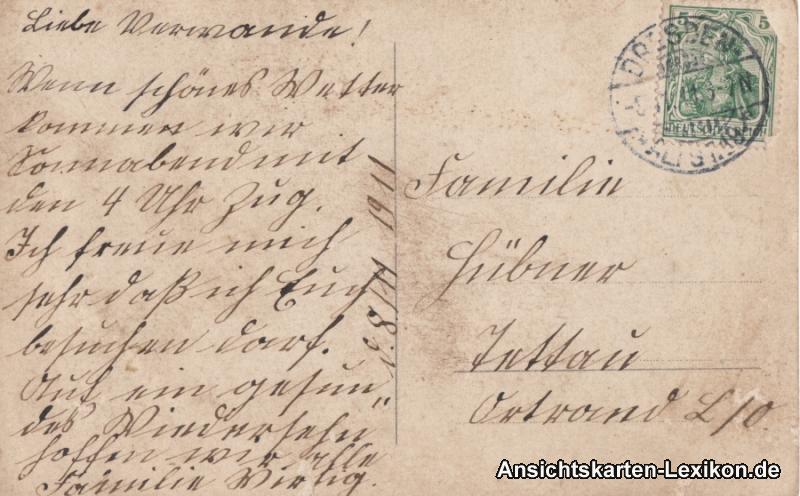 Liebe Verwande!
Wenn schönes Wetter
kommen wir
Sonnabend mit
den 4 Uhr Zug.
Ich freue mich
sehr daß ich Euch
besuchen darf.
Auf ein gesun„
des Wiedersehn
hoffen wir alle
Familie
1911
Familie
Hübner
Tettau
Ortrand L/O.
5 5
DRESDEN
ALTST.
DEUTSCHES REICH
Ansichtskarten-Lexikon.de